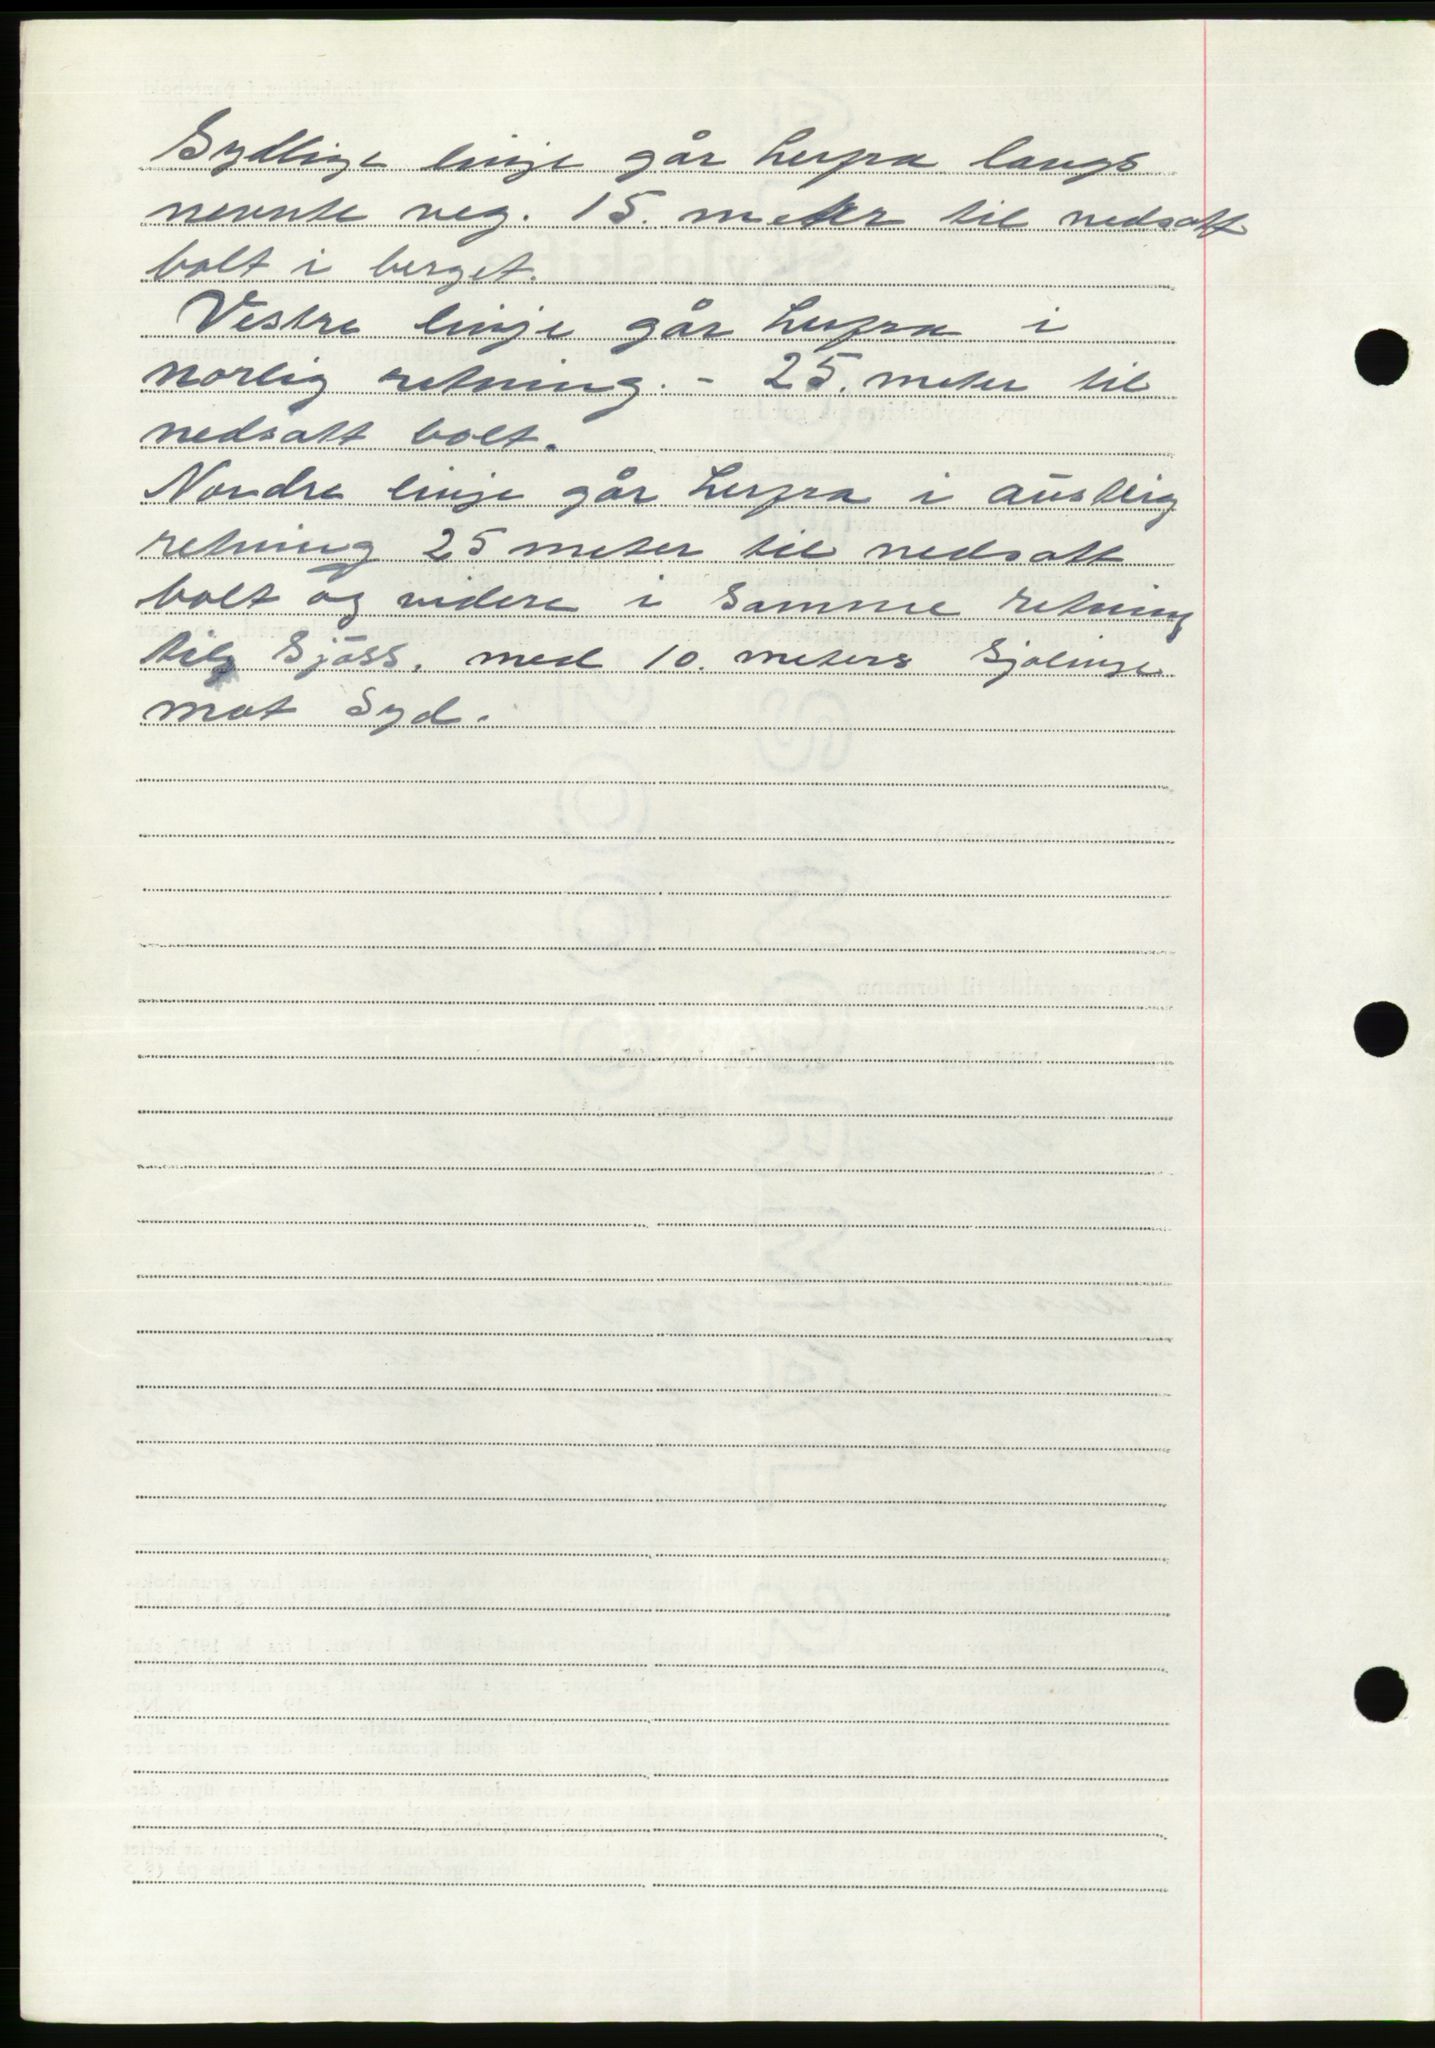 Sydlige linje går herfra langs
nevnte veg. 15. meter til nedsatt
bolt i berget.
Vestre linje går herfra i
norlig retning. - 25. meter til
nedsatt bolt.
Nordre linje går herfra i austlig
retning 25 meter til nedsatt
bolt og videre i samme retning
til sjöss. med 10. meters sjølinje
mot Syd.